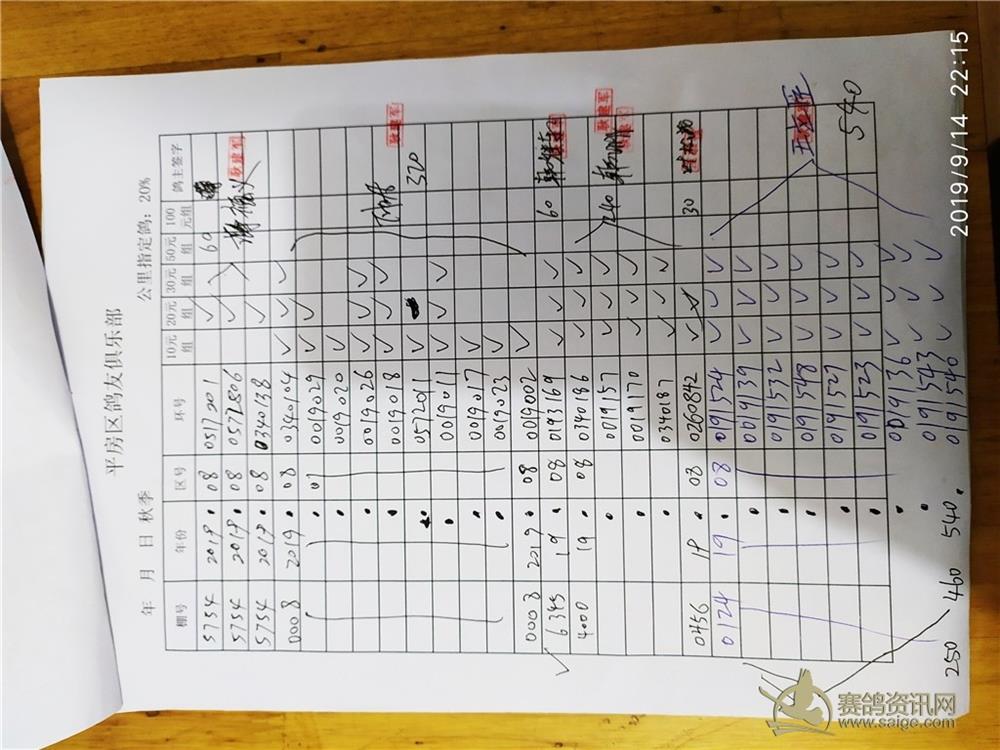 平房区鸽友俱乐部
年 月 日 秋季 公里指定鸽：20%
棚号 年份 区号 环号 10元组 20元组 30元组 50元组 100元组 鸽主签字
5754 2018 08 0517201 ✓ ✓ 60
5754 2018 08 0572806 ✓ ✓ 耿建军
5754 2018 08 0340138 ✓ ✓
0008 2019 08 0340104 ✓ ✓ ✓
07 0019029 ✓ ✓
0019020 ✓
0019026 ✓ ✓ ✓
0019018 ✓ ✓ ✓ 耿建军
0572011 ✓ 320
0019011 ✓ ✓ ✓
0019017 ✓
0019023 ✓
0008 2019 08 0019002 ✓
6345 19 08 0193169 ✓ ✓ ✓ 60
4000 19 08 0340186 ✓ ✓ ✓
0019157 ✓ ✓ ✓ 240 耿建军
0019170 ✓ ✓ ✓
0340187 ✓ ✓ ✓
0456 18 08 0260842 ✓ ✓ 30
0124 19 08 0191524 ✓ ✓ ✓
0019139 ✓ ✓ ✓
0191532 ✓ ✓ ✓
0191548 ✓ ✓ ✓
0191529 ✓ ✓ ✓ 540
0191523 ✓ ✓ ✓
0019136 ✓ ✓ ✓
0191543 ✓ ✓ ✓
0191540 ✓ ✓ ✓
250 460 540.
2019/9/14 22:15
赛鸽资讯网
www.saige.com